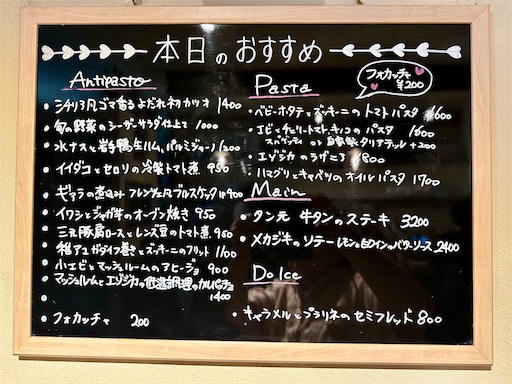 本日のおすすめ
Antipasto
・シチリア風ゴマ香るよだれ初カツオ 1400
・旬の野菜のシーザーサラダ仕立て 1000
・水ナスと岩手鴨生ハム、パルミジャーノ 1200
・イイダコとセロリの冷製トマト煮 950
・ギアラの煮込み フレンツェ風ブルスケッタ 900
・イワシとジャガ芋のオーブン焼き 950
・三元豚肩ロースとレンズ豆のトマト煮 950
・稚アユ とズッキーニのフリット 1100
・小エビとマッシュルームのアヒージョ 900
・マッシュルームとエゾジカの低温調理のカルパッチョ
1400
・フォカッチャ 200
フォカッチャ
¥200
Pasta
・ベビーホタテとズッキーニのトマトパスタ 1600
・エビとチェリートマト キノコのパスタ 1600
スパゲッティ or 自家製タリアテッレ +200
・エゾジカのラザニア 1800
・ハマグリとキャベツのオイルパスタ 1700
Main
・タン元 牛タンのステーキ 3200
・メカジキのソテー レモンと白ワインのバターソース 2400
Dolce
・キャラメルとプラリネのセミフレッド 800